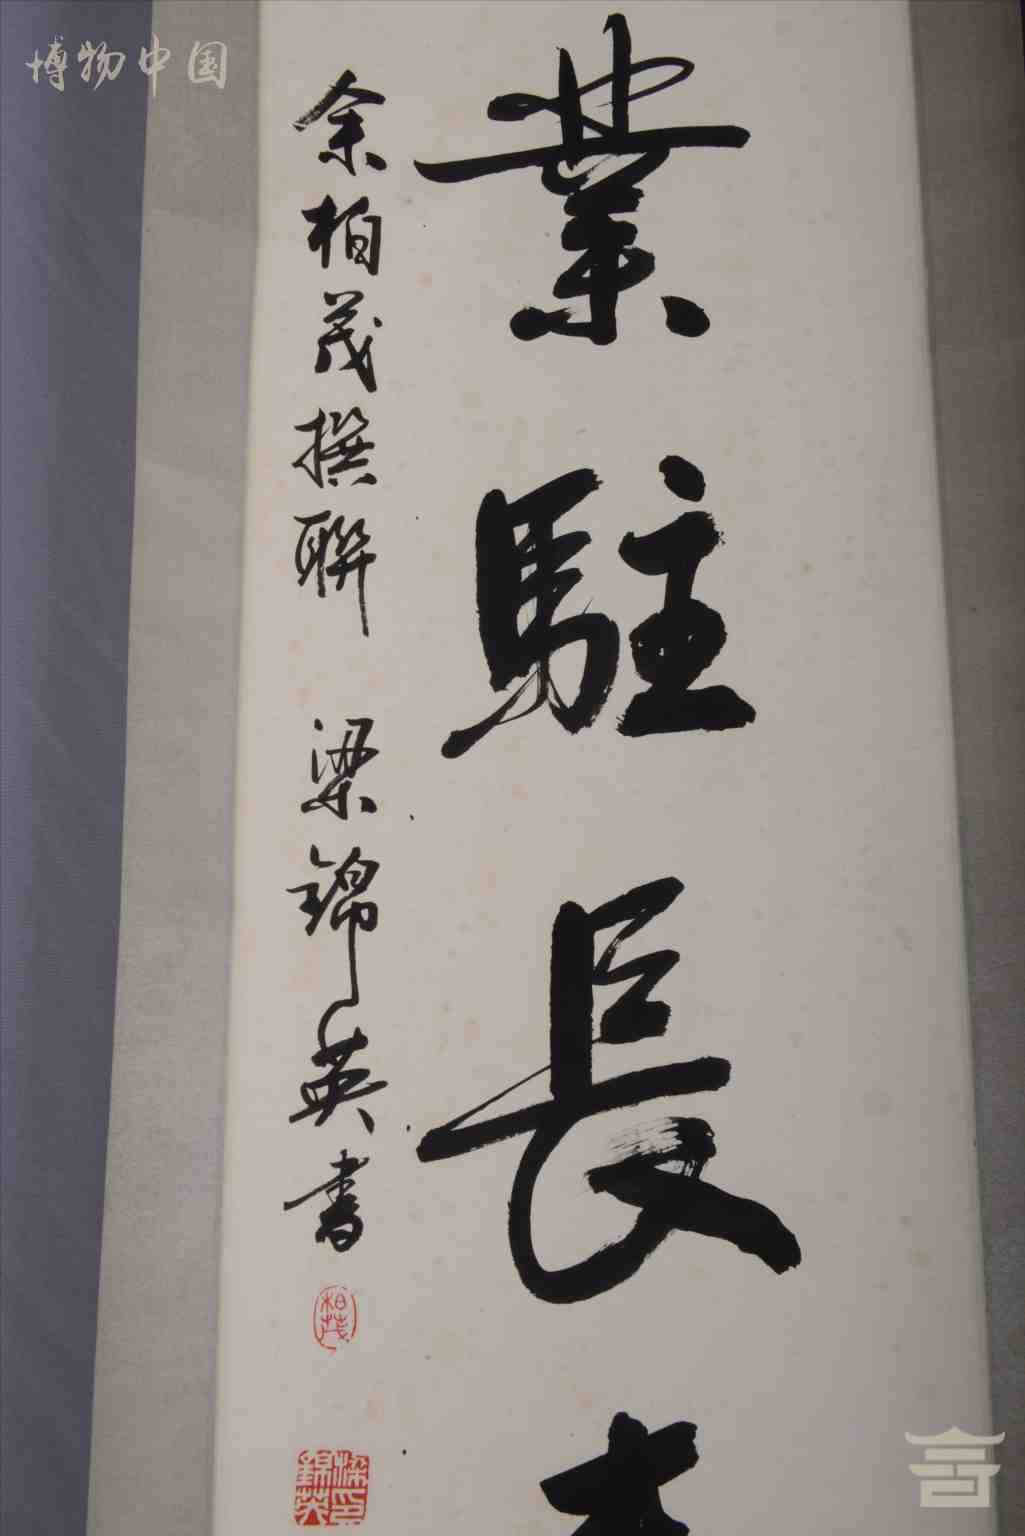 博物中国
業駐長
余柏茂撰聯 梁錦英書
柏茂
梁錦英印